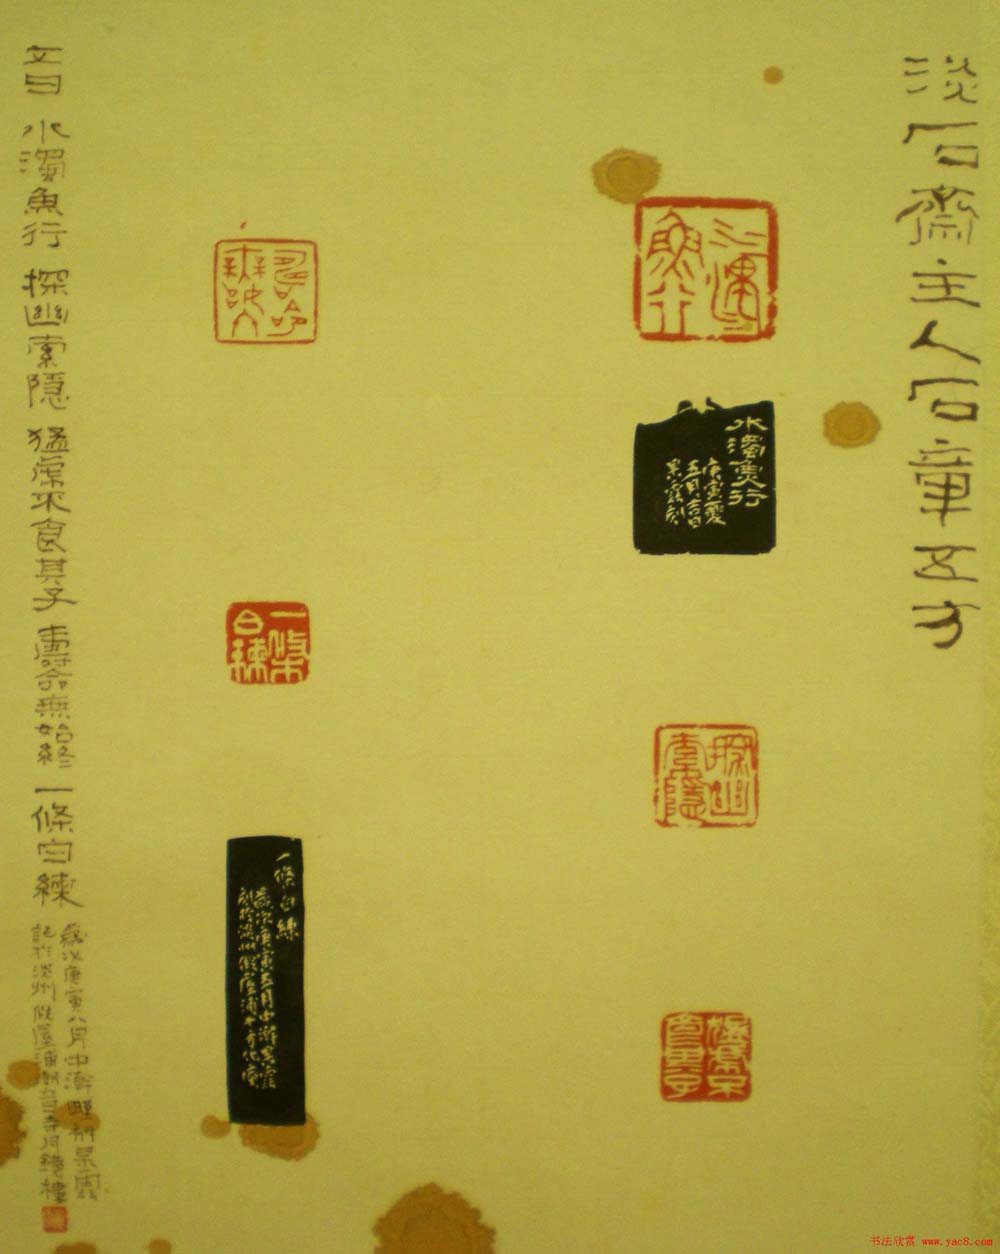 淡石齋主人石章五方
水濁魚行
水濁魚行
庚寅夏
五月吉日
探幽索隱
猛虎不食其子
一條白練
一條白練
歲次庚寅五月中澣
文曰 水濁魚行 探幽索隱 猛虎不食其子 壽命無始終 一條白練
歲次庚寅八月中澣
記於 州 月鏡樓
书法欣赏 www.yac8.com